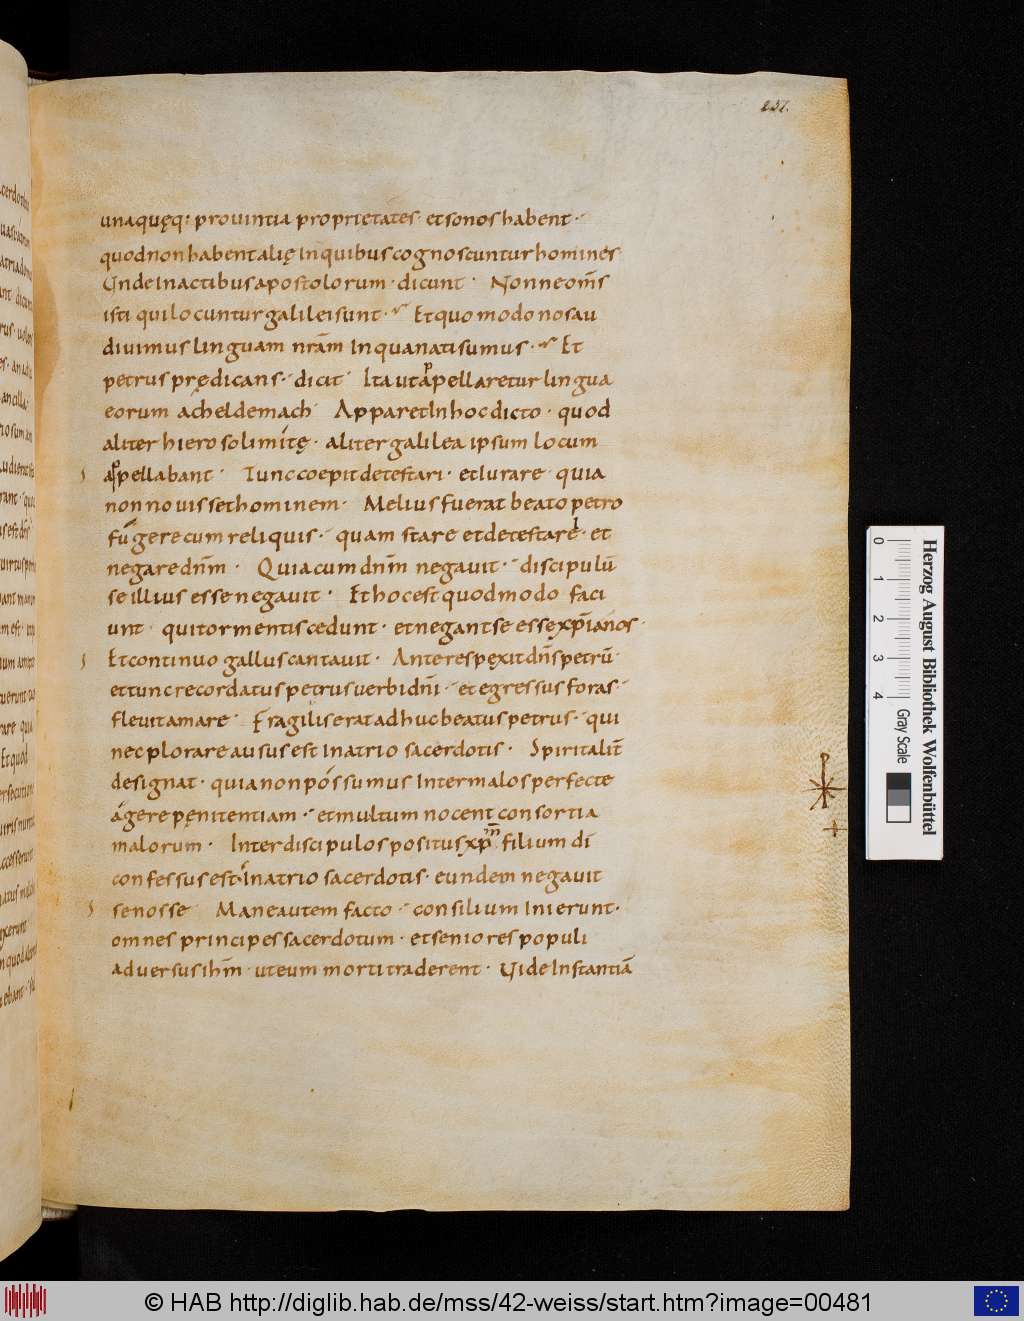 237.
unaquęq: prouintia proprietates. et sonos habent.
quod non habent alię in quibus cognoscuntur homines
Unde in actibus apostolorum. dicunt. Nonne om̄s
isti qui locuntur galilei sunt. Et quomodo nos au
diuimus linguam nr̄am in qua nati sumus. Et
petrus prędicans. dicit. Ita ut appellaretur lingua
eorum acheldemach Apparet In hoc dicto. quod
aliter hierosolimitę. aliter galilea ipsum locum
appellabant. Tunc coepit detestari. et Iurare. quia
non nouisset hominem. Melius fuerat beato petro
fugere cum reliquis. quam stare et detestare. et
negare dn̄m. Quia cum dn̄m negauit. discipulū
se illius esse negauit. Et hoc est quod modo faci
unt. qui tormentis cedunt. et negant se esse xp̄ianos.
Et continuo gallus cantauit. Ante respęxit dn̄s petrū.
et tunc recordatus petrus uerbi dn̄i. et egressus foras.
fleuit amare. Fragilis erat adhuc beatus petrus. qui
nec plorare ausus est in atrio sacerdotis. Spiritalit̄
designat. quia non possumus inter malos perfecte
agere pęnitentiam. et multum nocent consortia
malorum. Inter discipulos positus xp̄m filium dī
confessus est. In atrio sacerdotis. eundem negauit
se nosse Mane autem facto. consilium Inierunt.
omnes principes sacerdotum. et seniores populi
aduersus ihm̄. ut eum morti traderent. Vide Instantiā
Herzog August Bibliothek Wolfenbüttel
0 1 2 3 4
Gray Scale
© HAB http://diglib.hab.de/mss/42-weiss/start.htm?image=00481